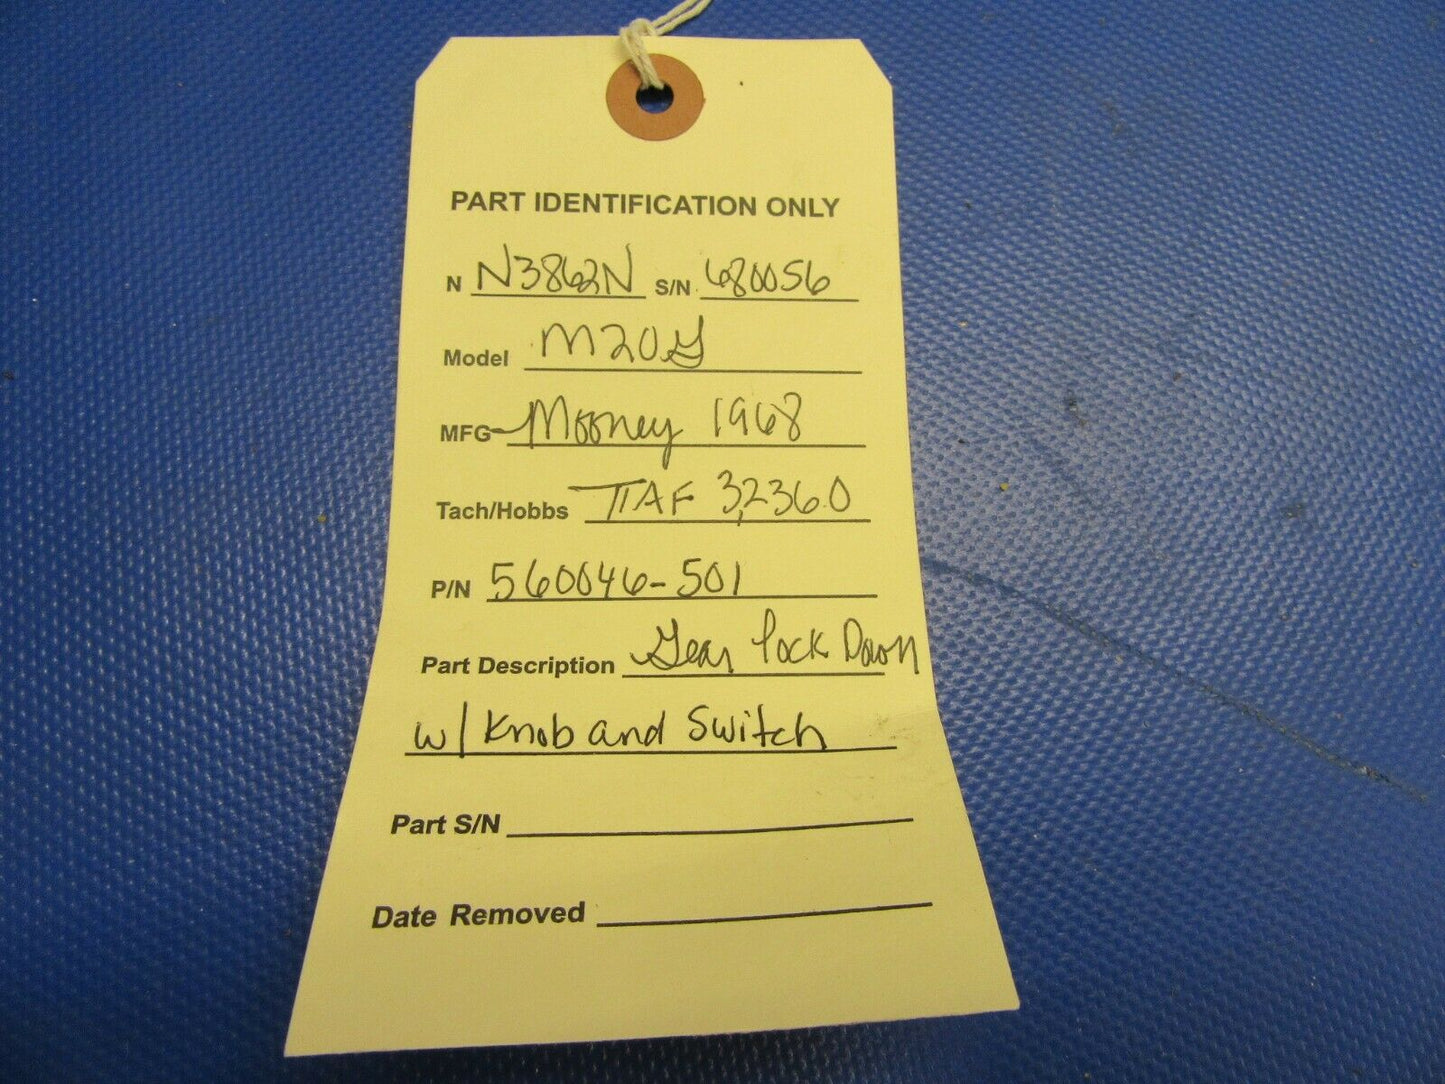 PART IDENTIFICATION ONLY
N N3862N S/N 680056
Model M20G
MFG Mooney 1968
Tach/Hobbs TTAF 3,236.0
P/N 560046-501
Part Description Gear Lock Down
w/ Knob and Switch
Part S/N
Date Removed